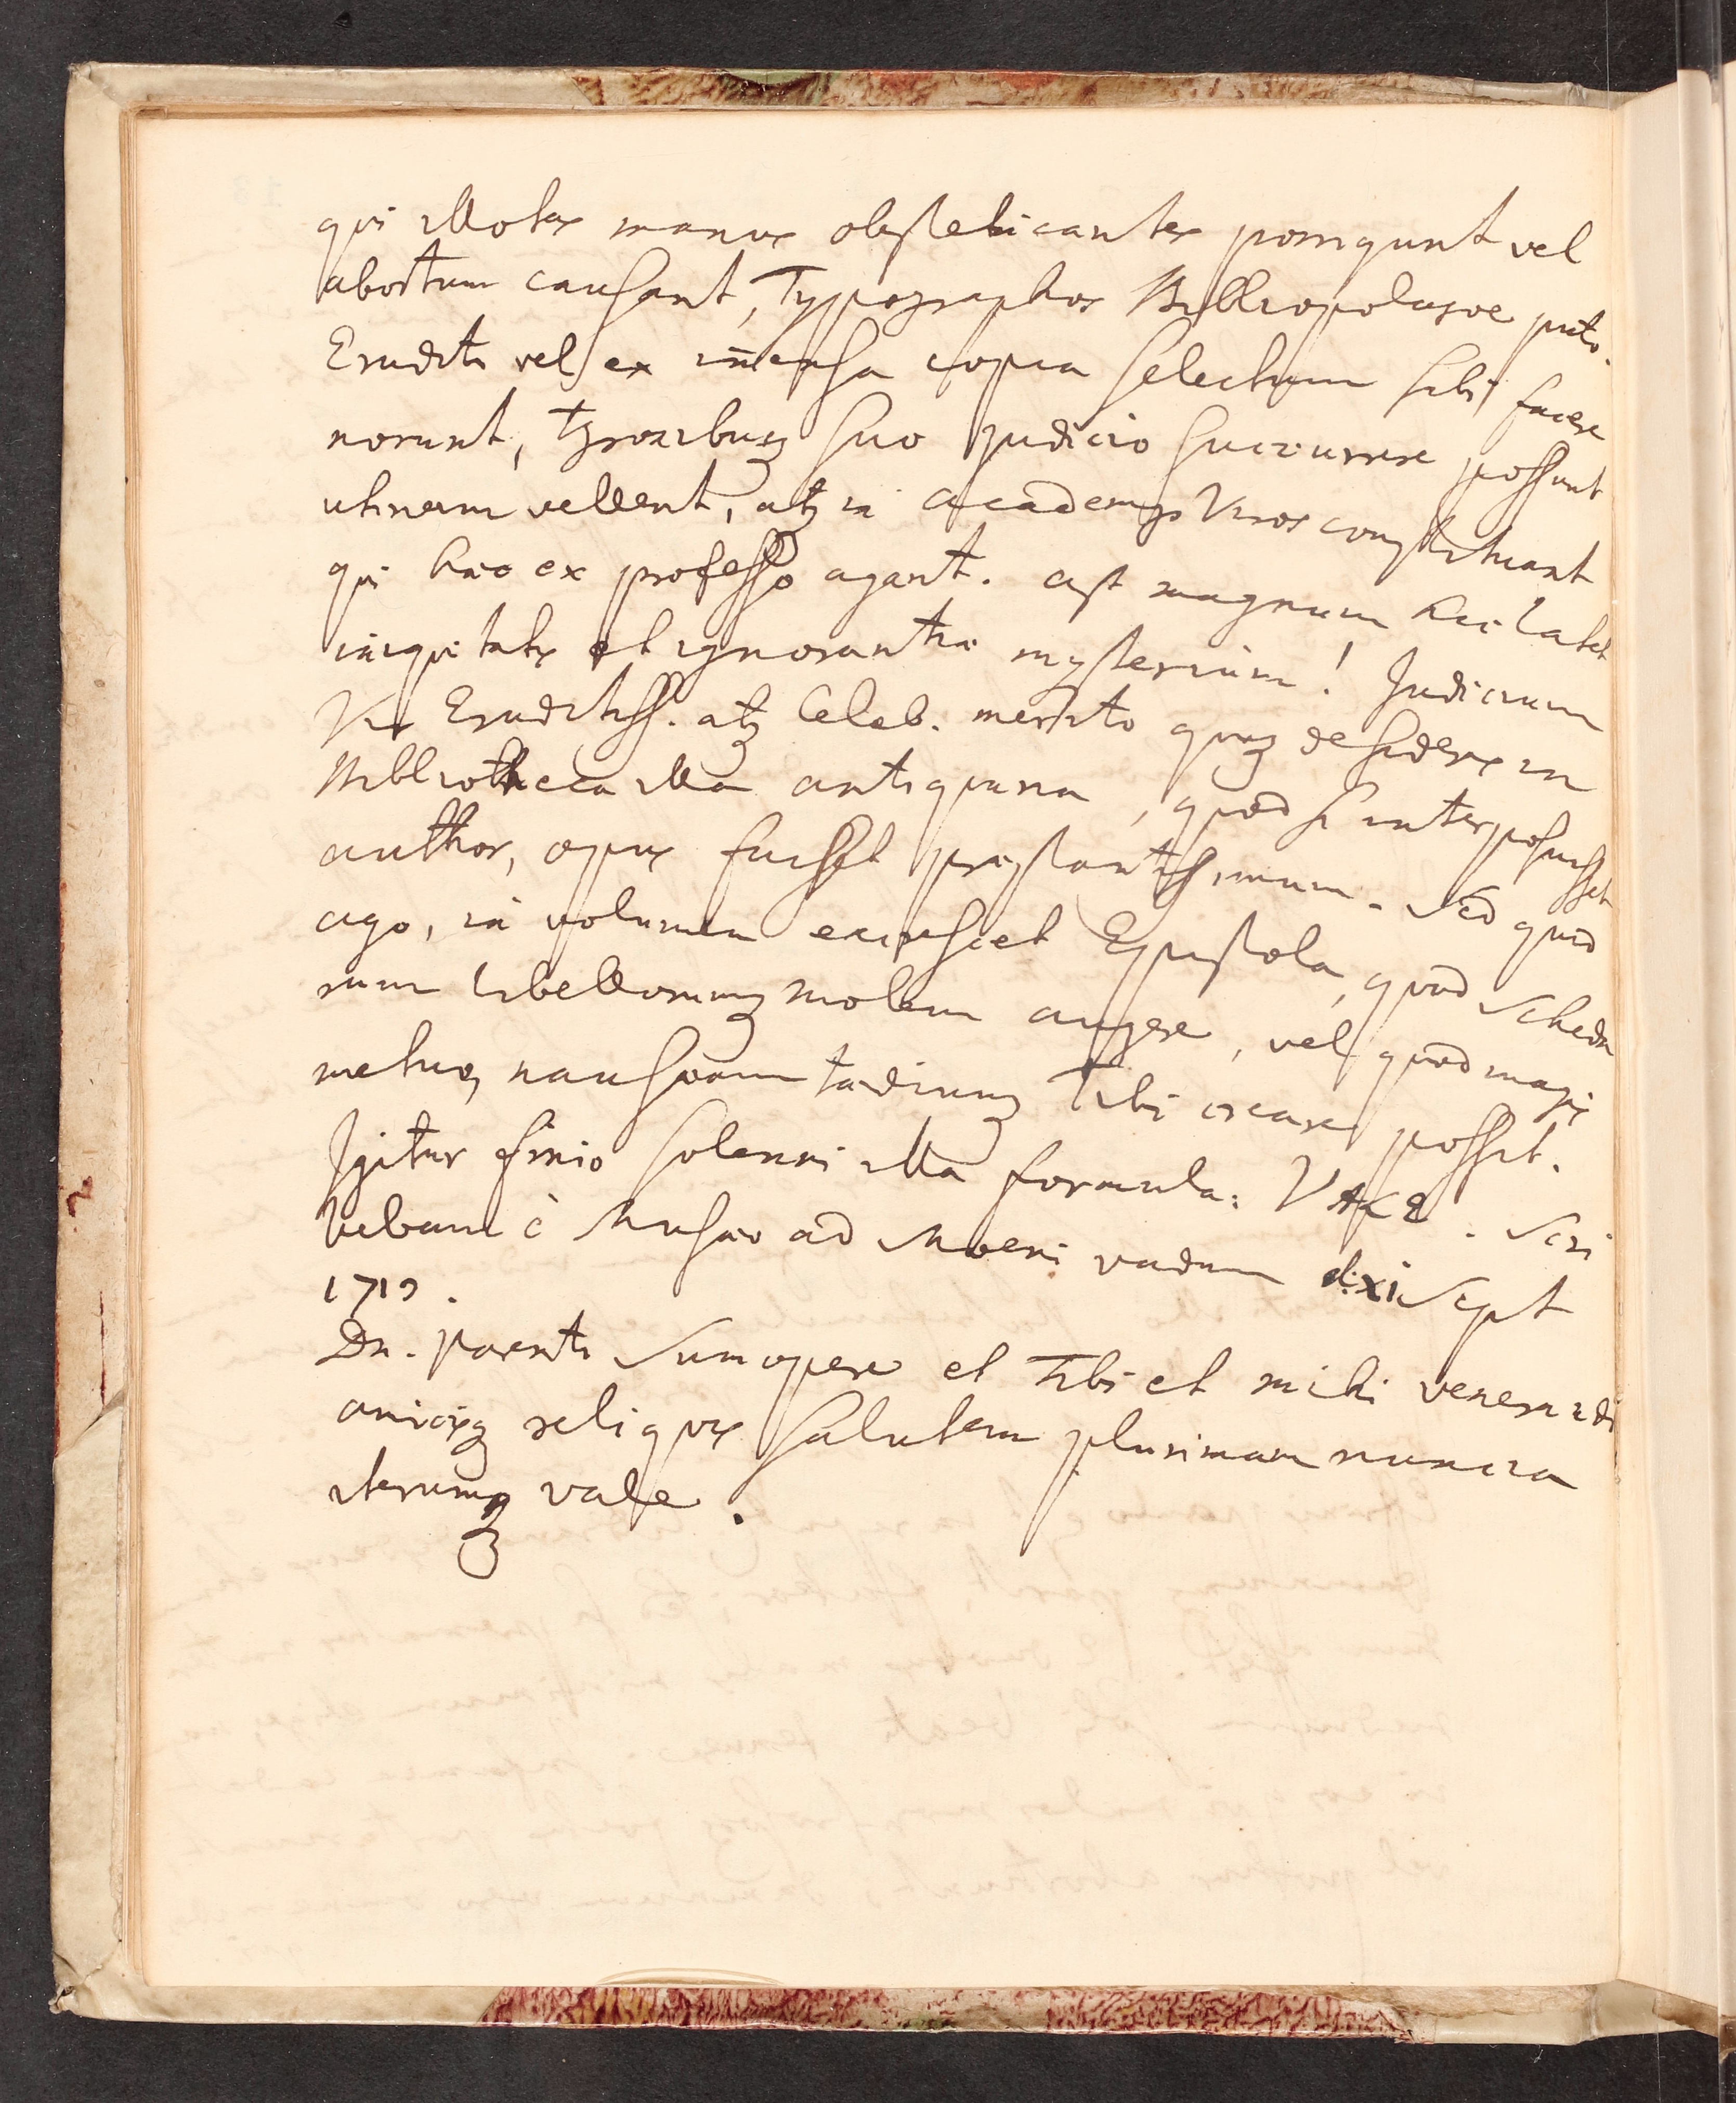 qui illotas manus obstetricantes porrigunt vel
abortum causant, Typographos Bibliopolasve puto.
Eruditi vel ex im̄ensa copia selectum sibi facere
norunt, Tyronibusq; suo judicio succurrere possunt
utinam vellent, atq; in Academijs Viros constituant
qui hoc ex professo agant. ast magnum hic latet
iniquitatis et ignorantiæ mysterium! Judicium
Vir Eruditiss. atq; Celeb. merito quoq; desideras in
Bibliotheca illa antiquaria, quod si interposuisset
author, opus fuisset præstantissimum. Sed quid
ago, in volumen excresceret Epistola, quod Scheda
rum libellorumq; molem augere, vel quod magis
metuo, nauseam tædiumq; Tibi creare posset.
Igitur finio solenni illa formula: VALE. Scri
bebam è Musæo ad Moeni vadum d. XI Sept
1719.
Dn. Parenti Summopere et Tibi et mihi venerandi
amicisq; reliquis salutem plurimam nuncia
iterumq; vale.